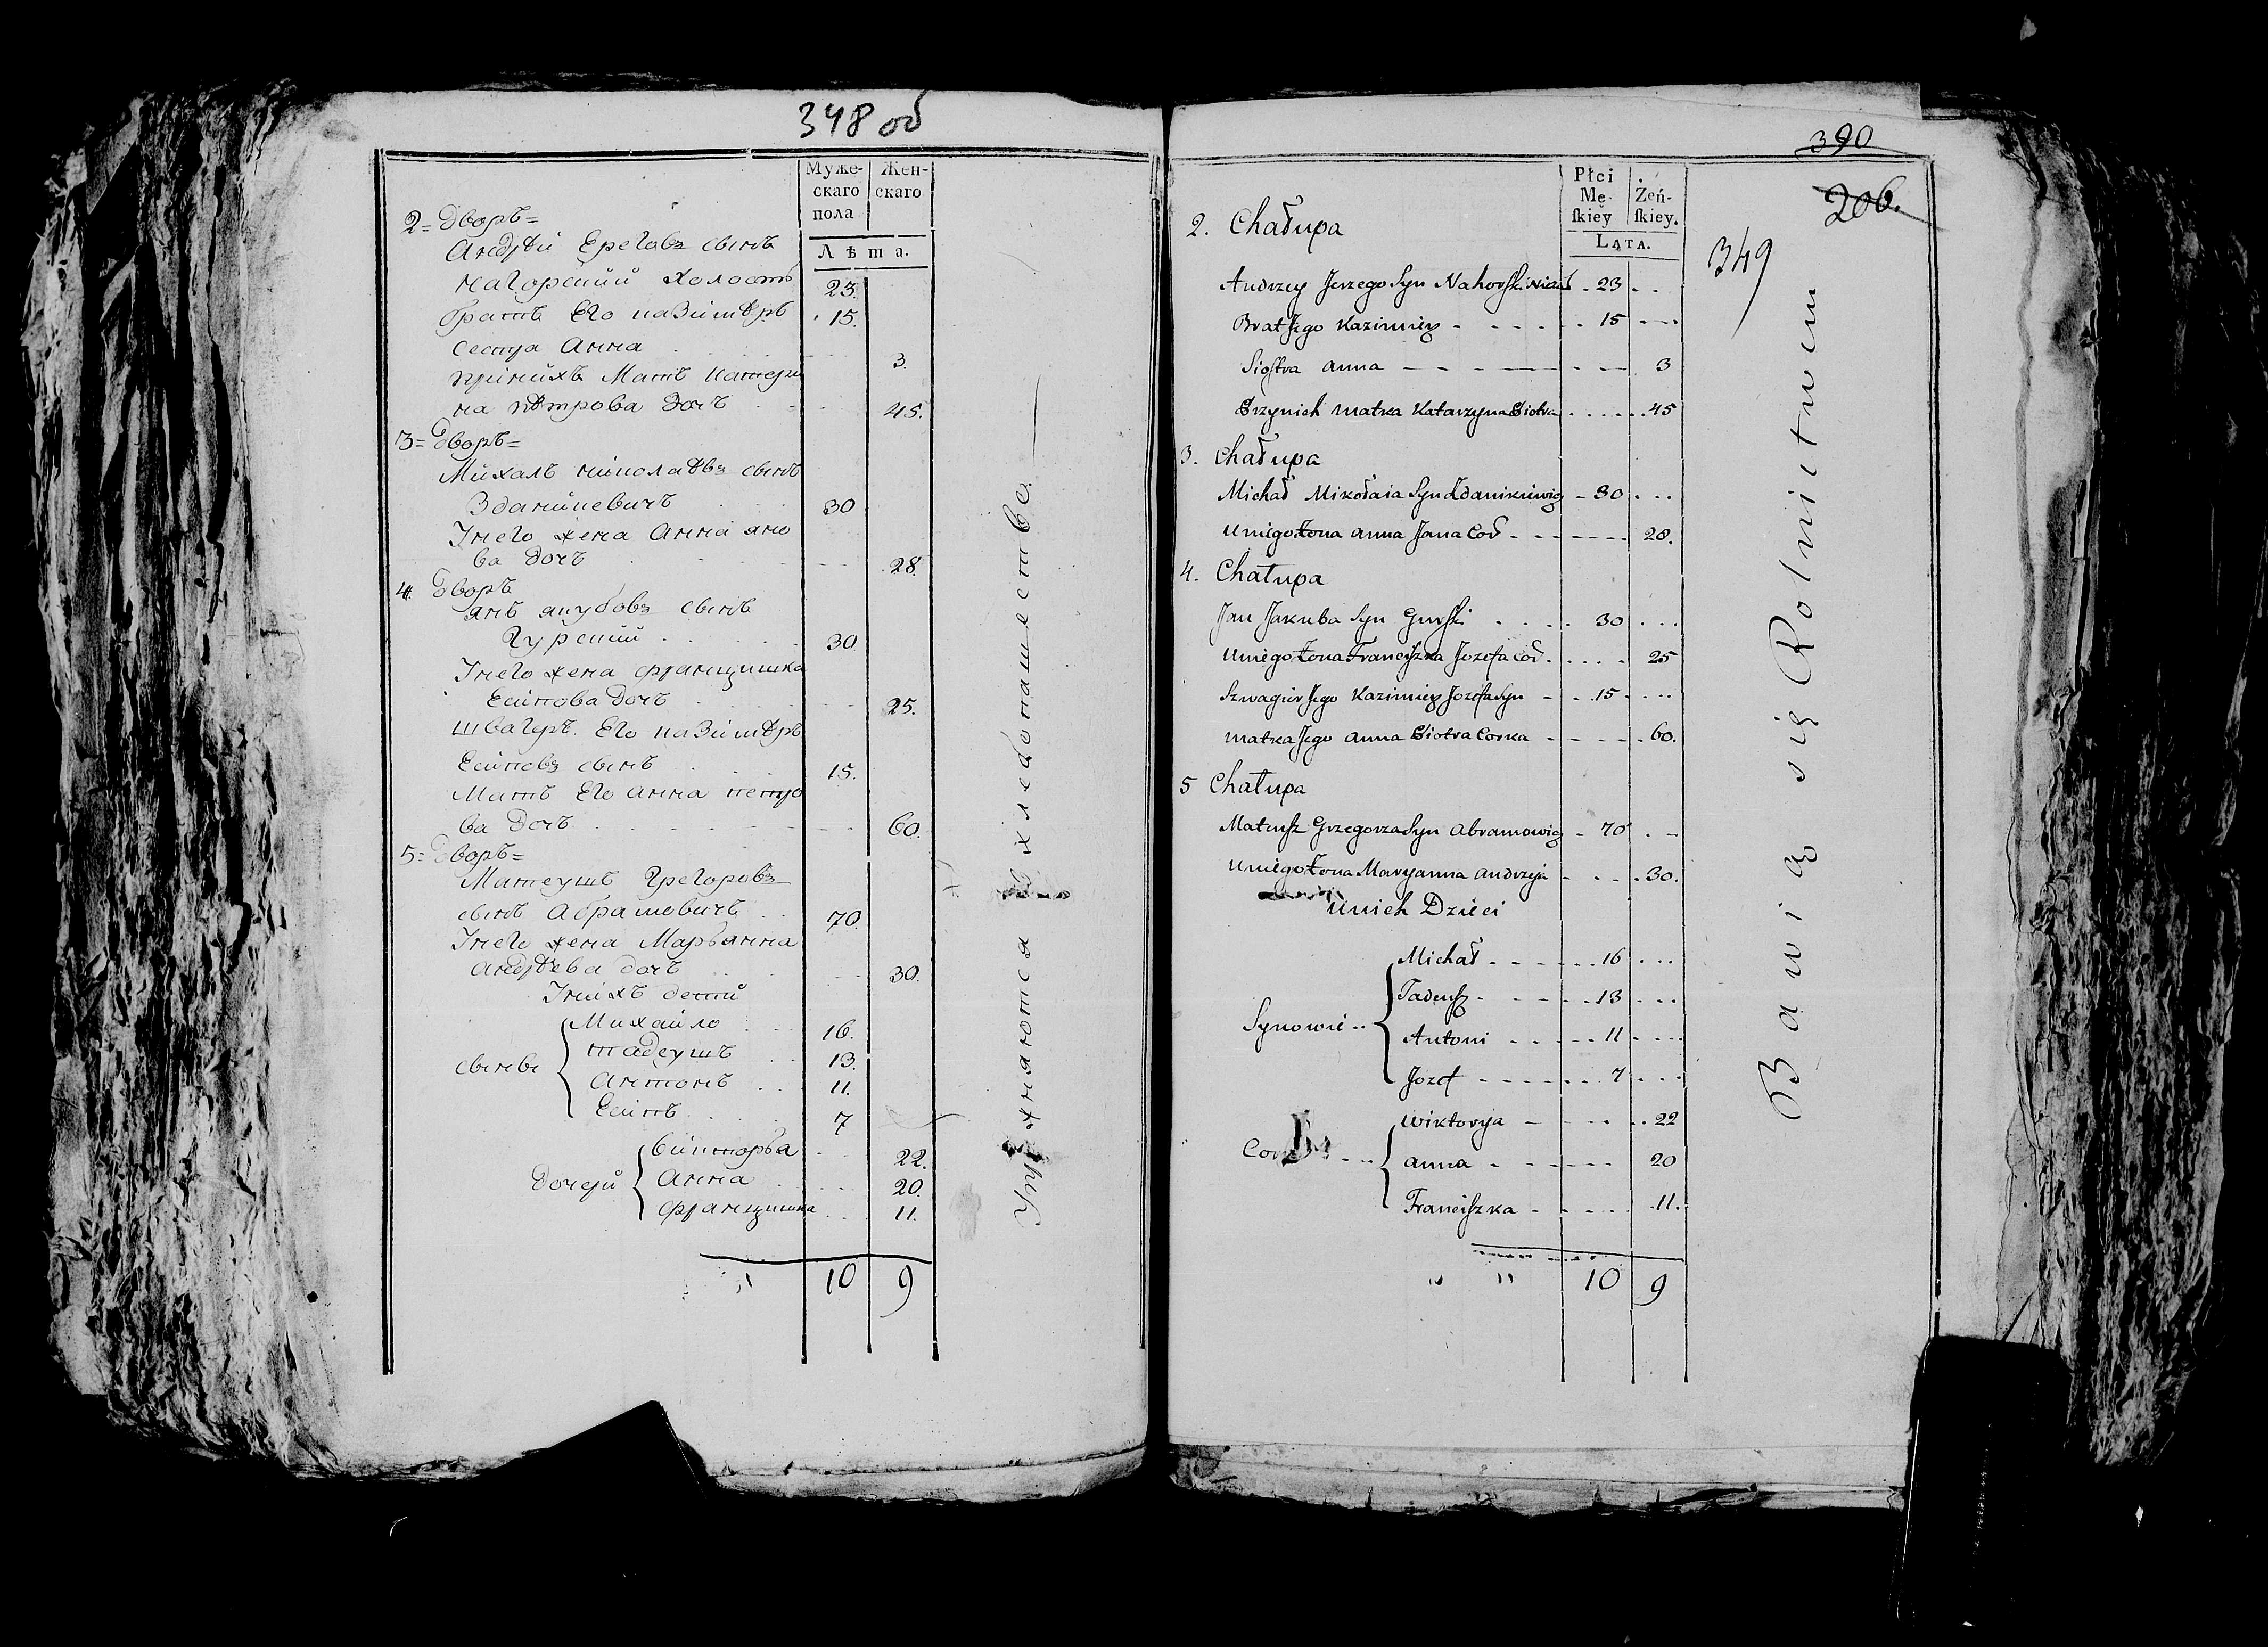 348 об
Муже-
скаго
пола
Жен-
скаго
Лѣта.
2= Дворъ=
Андрѣй Ереговъ сынъ
Нагорский холостъ 23.
братъ Его казимѣръ 15.
Сестра Анна 3.
принихъ Мать катери
на пѣтрова дочь 45.
3= Дворъ=
Михалъ николаѣвъ сынъ
Зданикевичъ 30
Унего жена Анна яно
ва дочь 28.
4. Дворъ
янъ якубовъ сынъ
Гурский 30.
Унего жена францишка
Есипова дочь 25.
швагеръ Его казимѣръ
Есиповъ сынъ 15.
Мать Его анна петро
ва дочь 60.
5= Дворъ=
Матеушъ Грегоровъ
сынъ Абрамовичъ 70.
Унего жена Марьянна
андрѣева дочь 30.
Унихъ детий
сыны
Михайло 16.
тадеушъ 13.
антонъ 11.
Есипъ 7
дочерй
викторья 22.
Анна 20.
францишка 11.
10 9
Упражняются в хлебопашество.
390
206.
349
Płci
Mę-
skiey
Żeń-
skiey.
LATA.
2. Chałupa
Andrzey Jerzego Syn Nahorski 23
Brat Jego Kazimierz 15
Siostra anna 3
Przynich matka Katarzyna Piotra 45
3. Chałupa
Michał Mikołaia Syn Zdanikiewicz 30
Uniego Żona anna Jana Cor 28.
4. Chałupa
Jan Jakuba Syn Gurski 30
Uniego Żona Franciszka Jozefa Cor. 25
Szwagier Jego Kazimierz Jozefa Syn 15
matka Jego anna Piotra Corka 60.
5 Chałupa
Mateusz Grzegorza Syn Abramowicz 70
Uniego Żona Maryanna Andrzeja 30.
Unich Dzieci
Synowie
Michał 16
Tadeusz 13
Antoni 11
Jozef 7
Wiktorya 22
anna 20
Franciszka 11.
10 9
Bawią się Rolnictwem